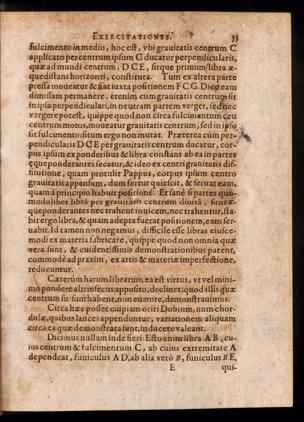 EXERCITATIONES. 33
fulcimento in medio, hoc est, vbi grauitatis centrum C
applicato per centrum ipsum G ducatur perpendicularis,
quæ ad mundi centrum, D C E, sitque primum libra æ-
quedistans horizonti, constituta. Tum ex altera parte
pressa moueatur & fiat iuxta positionem F C G. Dico eam
dimissam permanere, etenim cum grauitatis centrum sit
in ipsa perpendiculari, in neutram partem verget, sed nec
vergere potest, quippe quod non circa fulcimentum ceu
centrum motus, moueatur grauitatis centrum, sed in ipso
sit fulcimento situm ergo non mutat. Præterea cum per-
pendicularis D C E per grauitatis centrum ducatur, cor-
pus ipsum ex ponderibus & libra constans ab ea in partes
æqueponderantes secatur, & ideo ex centri grauitatis dif-
finitione, quam protulit Pappus, corpus ipsum centro
grauitatis appensum, dum fertur quiescit, & seruat eam,
quam à principio habuit positionẽ. Et sanè si partes quo-
modolibet librà per grauitatis centrum diuisâ, sunt æ-
queponderantes nec trahent inuicem, nec trahentur, sta-
bit ergo libra, & quam adepta fuerat positionem, eam ser-
uabit. Id tamen non negamus, difficile esse libras eiusce-
modi ex materia fabricare, quippe quod non omnia quæ
vera sunt, & euidentissimis demonstrationibus patent,
commodè ad praxim, ex artis & materiæ imperfectione,
reducuntur.
Cæterùm harum librarum ea est virtus, vt vel mini-
mo pondere altrinsecus apposito, declinet: quod illis quæ
centrum susum habent, non euenire, demonstrauimus.
Circa hæc posset cuipiam oriri Dubium, num chor-
dulæ, quibus lances appenduntur, variationem aliquam
circa ea quæ demonstrata sunt, inducere valeant.
Dicimus nullam inde fieri. Esto enim libra A B, cu-
ius centrum & fulcimentum C, ab cuius extremitate A
dependeat, funiculus A D, ab alia verò B, funiculus B E,
E qui-